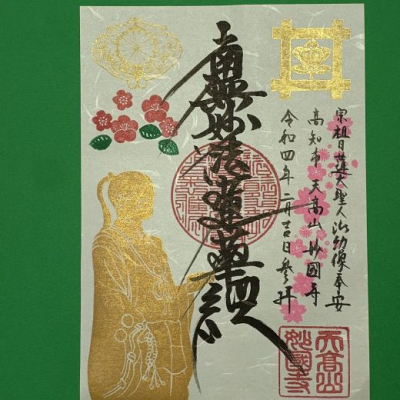 宗祖日蓮大聖人御幼像奉安
高知市天高山妙國寺
令和四年二月吉日参拝
南無妙法蓮華経
天高山
妙國寺